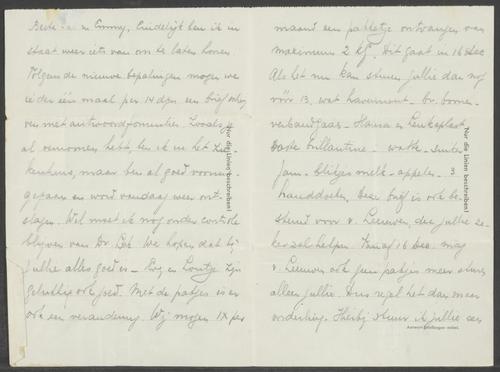 en Emmy, Eindelijk ben ik in
staat weer iets van me te laten horen.
Volgens de nieuwe bepalingen mogen we
ieder één maal per 14 dgn. een brief
ven met antwoordformulier. Zoals je
al vernomen hebt, ben ik in het Zie-
kenhuis, maar ben al goed vooruit-
gegaan en word vandaag weer ont-
slagen. Wel moet ik nog onder controle
blijven van Dr. We hopen dat bij
jullie alles goed is - en Loutje zijn
gelukkig ook goed. Met de pakjes is er
ook een verandering. Wij mogen 1x per
maand een pakketje ontvangen van
maximum 2 kg. Dit gaat in 16 Dec
Als het nu kan sturen jullie dan nog
vóór 13, wat havermout - bv. borre-
verbandgaas - Hansa en Leukoplast
vaste brillantine - watte - suiker
jam - blikjes melk - appelen - 3
handdoeken. Deze brief is ook be-
stemd voor v. Leeuwen, die jullie ze-
ker zal helpen. Vanaf 16 Dec. mag
v. Leeuwen ook geen pakjes meer sturen
alleen jullie. Dus regel het dan maar
onderling. Hierbij stuur ik jullie een
Nur die Linien beschreiben!
Nur die Linien beschreiben!